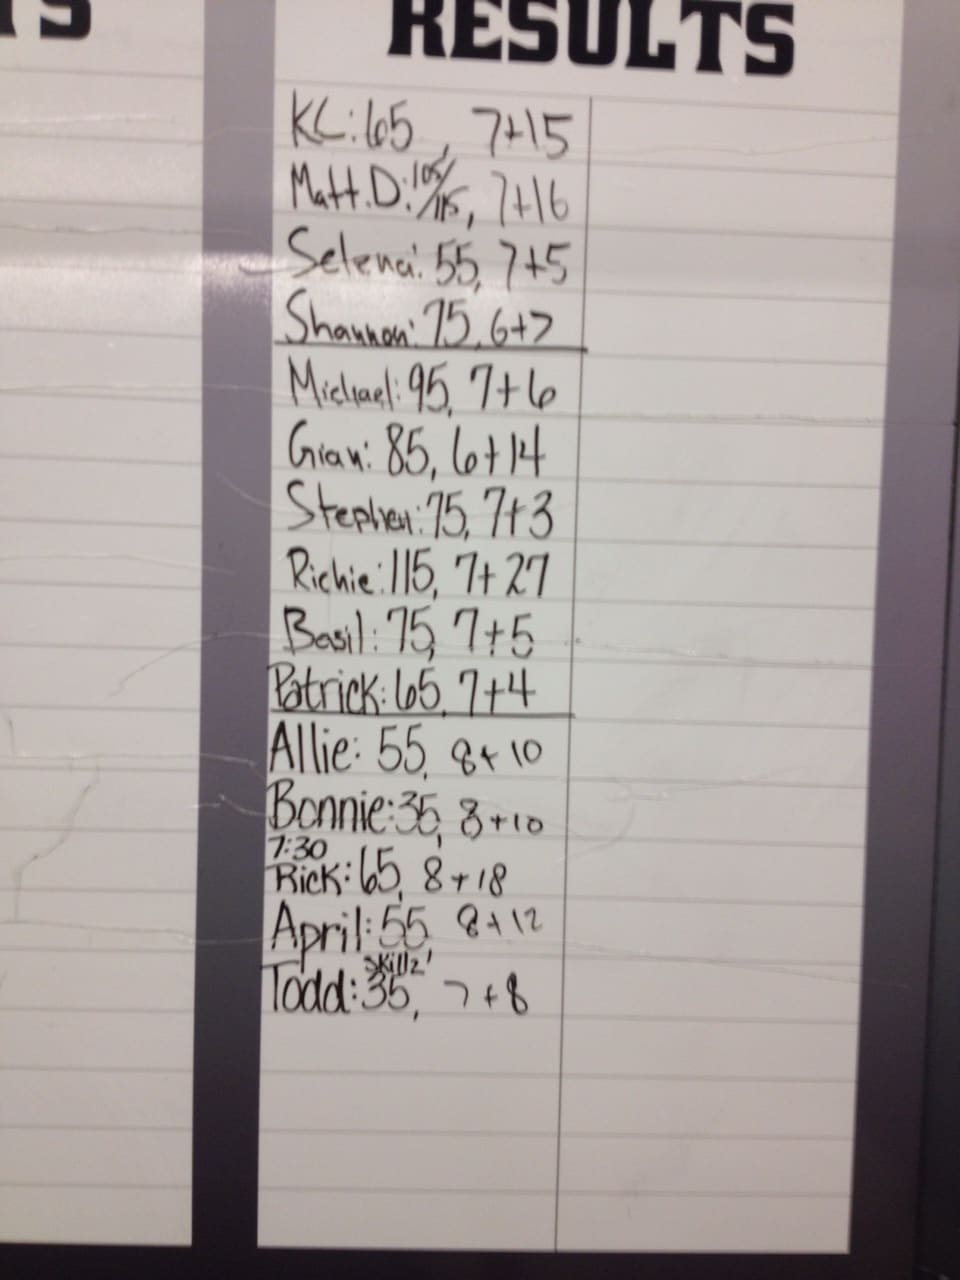 RESULTS
KC: 65, 7+15
Matt.D: 105/115, 7+16
Selena: 55, 7+5
Shannon: 75, 6+7
Michael: 95, 7+6
Gian: 85, 6+14
Stephen: 75, 7+3
Richie: 115, 7+27
Basil: 75, 7+5
Patrick: 65, 7+4
Allie: 55, 8+10
Bonnie: 35, 8+10
7:30
Rick: 65, 8+18
April: 55, 8+12
Skillz'
Todd: 35, 7+8